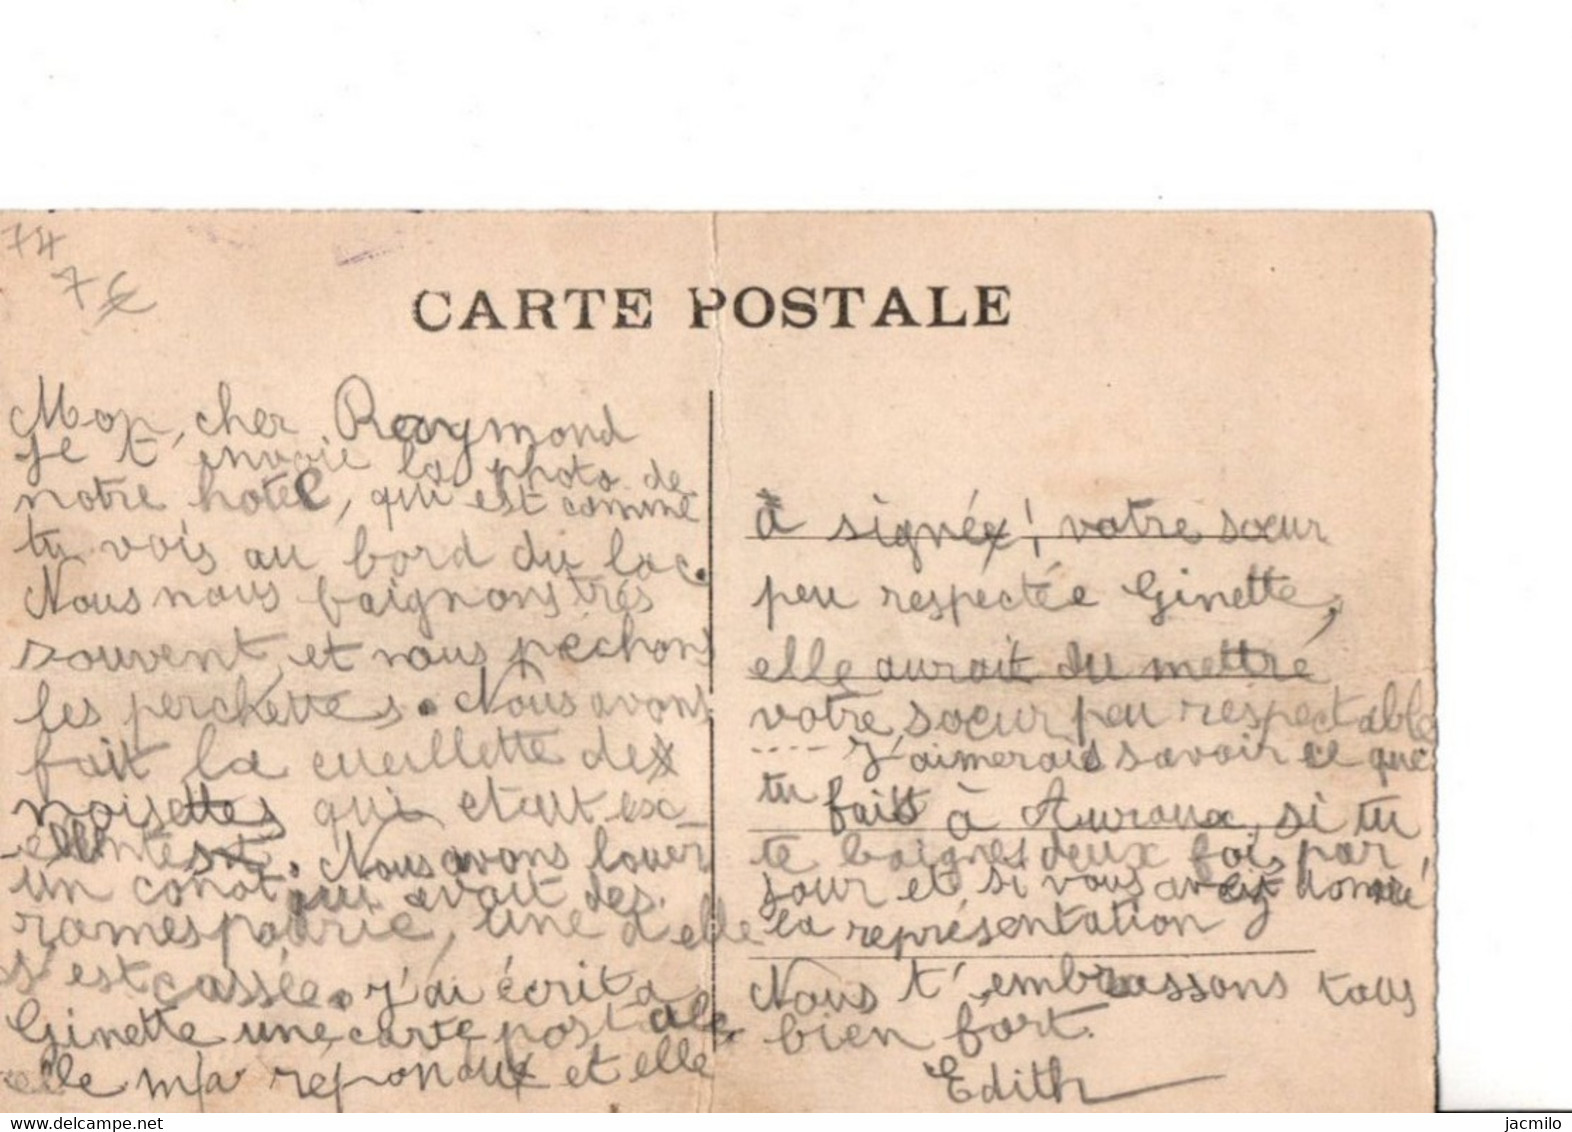 74
7€
CARTE POSTALE
Mon cher Raymond
je t'envoie la photo de
notre hotel, qui est comme
tu vois au bord du lac.
Nous nous baignons très
souvent, et nous pêchons
les perchettes. Nous avons
fait la cueillette des
noisettes qui était exc_
ellentes. Nous avons louer
un canot qui avait des
rames pourrie, une d'elle
s'est cassée. J'ai écrit a
Ginette une carte postale
elle m'a reponduε et elle
à signée! votre sœur
peu respectée Ginette,
elle aurait du mettre
votre sœur peu respectable
---- J'aimerais savoir ce que
tu fais à Auroux, si tu
te baignes deux fois par
jour et si vous avez donné
la représentation
Nous t'embrassons tous
bien fort.
Edith
delcampe.net
jacmilo